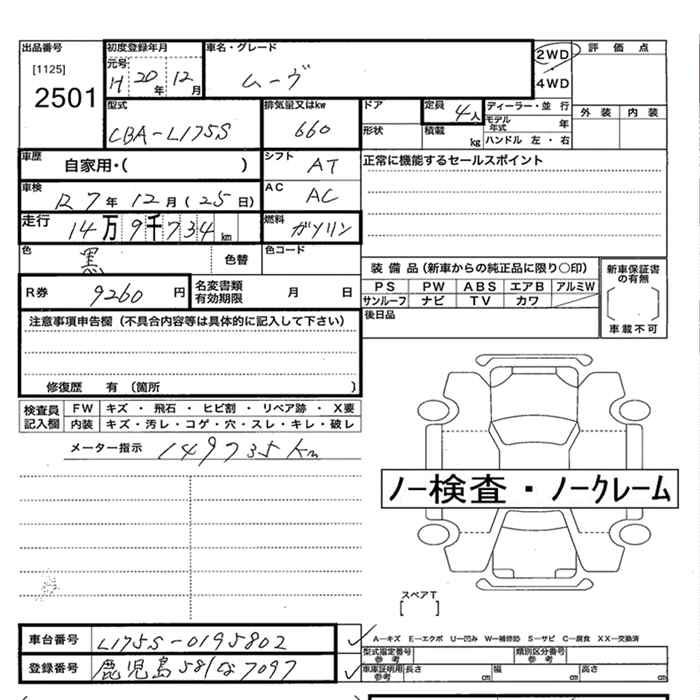 出品番号 初度登録年月 車名・グレード 2WD 評価点
[1125] 元号 H 20 年 12 月 ムーヴ 4WD
2501
型式 排気量又はkw ドア 定員 4人 ディーラー・並行 外装 内装
CBA-L175S 660 形状 積載 kg モデル年式 年
ハンドル 左・右
車歴 自家用・( ) シフト AT 正常に機能するセールスポイント
車検 R 7年 12月 (25日) AC AC
走行 14万9千734km 燃料 ガソリン
色 黒 色替 色コード
装備品(新車からの純正品に限り○印) 新車保証書の有無
R券 9260 円 名変書類有効期限 月 日 PS PW ABS エアB アルミW
サンルーフ ナビ TV カワ [ ]
注意事項申告欄(不具合内容等は具体的に記入して下さい) 後日品 車載不可
修復歴 有 (箇所 )
検査員記入欄 FW キズ・飛石・ヒビ割・リペア跡・X要
内装 キズ・汚レ・コゲ・穴・スレ・キレ・破レ
メーター指示 149735km
ノー検査・ノークレーム
スペアT
[ ]
車台番号 L175S-0195802 A―キズ E―エクボ U―凹み W―補修跡 S―サビ C―腐食 XX―交換済
型式指定番号 参考 類別区分番号 参考
登録番号 鹿児島 581 な 7097 車庫証明用 参考 長さ cm 幅 cm 高さ cm